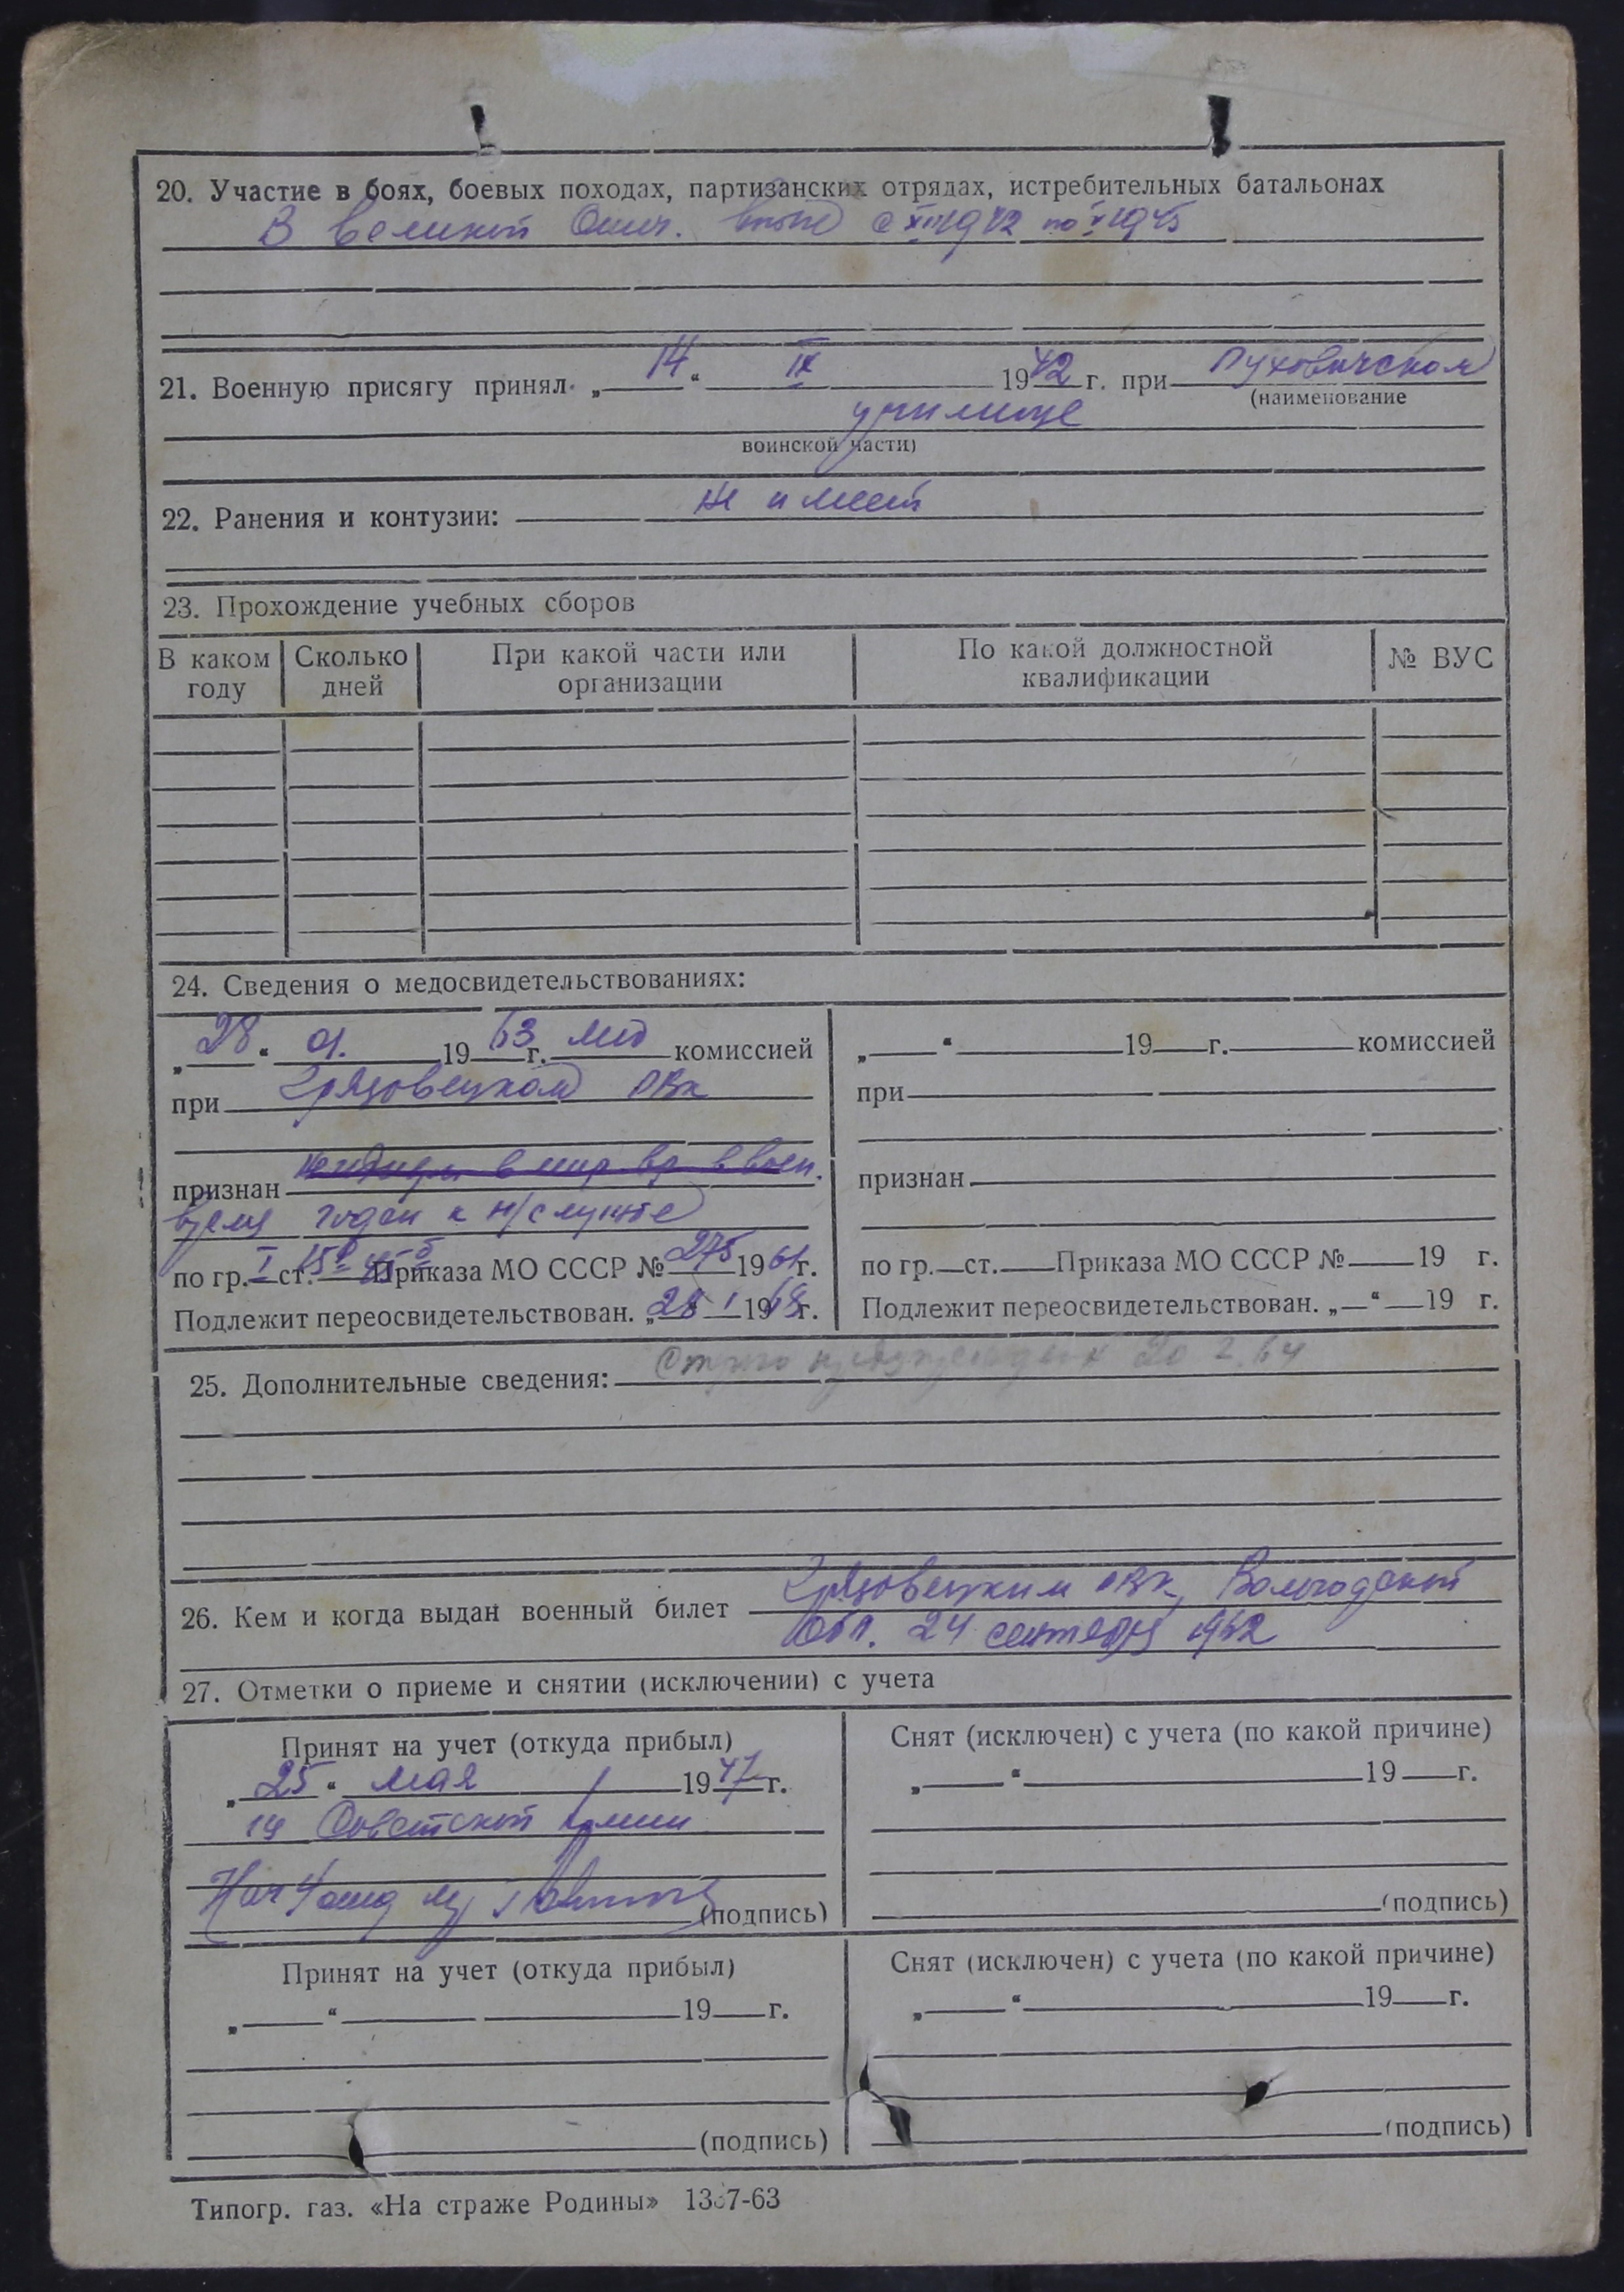 20. Участие в боях, боевых походах, партизанских отрядах, истребительных батальонах
В великой Отеч. войне с XII 1942 по V 1945
21. Военную присягу принял „14“ IX 1942 г. при Пуховичском
(наименование
училище
воинской части)
22. Ранения и контузии: не имеет
23. Прохождение учебных сборов
В каком году Сколько дней При какой части или организации По какой должностной квалификации № ВУС
24. Сведения о медосвидетельствованиях:
„28“ 01. 1963 г. мед комиссией
при Грязовецком ОВК
признан негоден в мир. вр. в воен.
время годен к н/службе
по гр. I ст. Приказа МО СССР № 275 1961 г.
Подлежит переосвидетельствован. „28 I 1968 г.
„ “ 19 г. комиссией
при
признан
по гр. ст. Приказа МО СССР № 19 г.
Подлежит переосвидетельствован. „ “ 19 г.
25. Дополнительные сведения: 20 2.64
26. Кем и когда выдан военный билет Грязовецким ОВК, Вологодской
обл. 24 сентября
27. Отметки о приеме и снятии (исключении) с учета
Принят на учет (откуда прибыл)
„25“ мая 1947 г.
из Советской Армии
Нач
(подпись)
Снят (исключен) с учета (по какой причине)
„ “ 19 г.
(подпись)
Принят на учет (откуда прибыл)
„ “ 19 г.
(подпись)
Снят (исключен) с учета (по какой причине)
„ “ 19 г.
(подпись)
Типогр. газ. «На страже Родины»